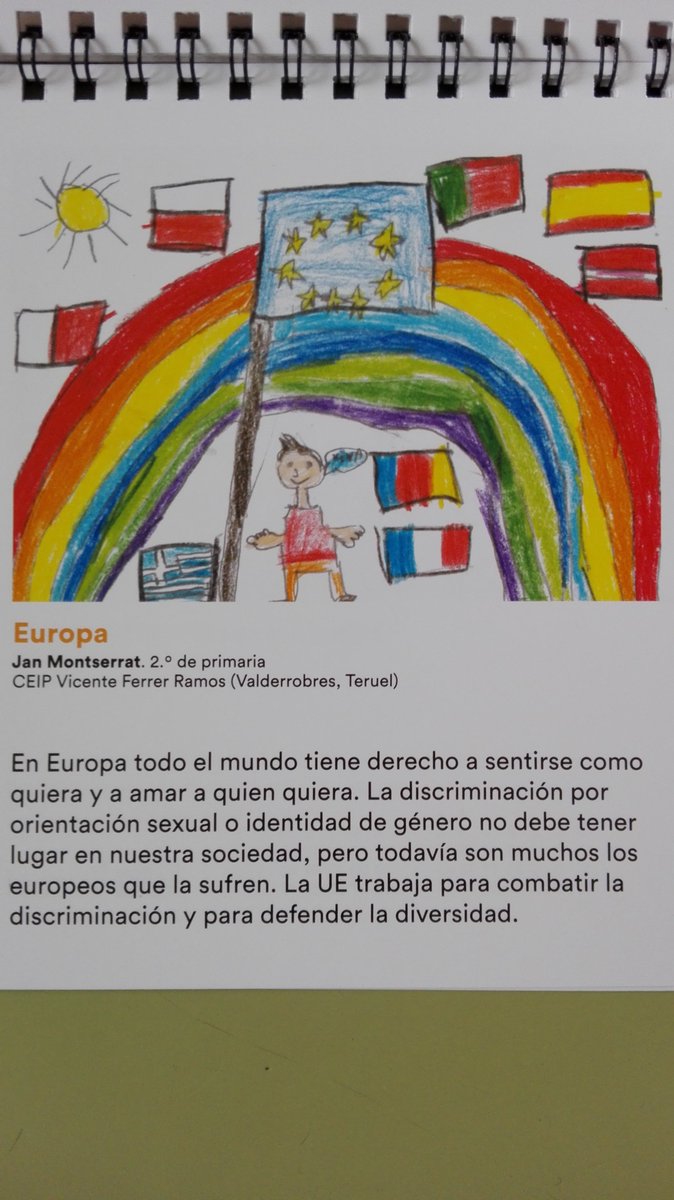 Europa
Jan Montserrat. 2.º de primaria
CEIP Vicente Ferrer Ramos (Valderrobres, Teruel)
En Europa todo el mundo tiene derecho a sentirse como
quiera y a amar a quien quiera. La discriminación por
orientación sexual o identidad de género no debe tener
lugar en nuestra sociedad, pero todavía son muchos los
europeos que la sufren. La UE trabaja para combatir la
discriminación y para defender la diversidad.